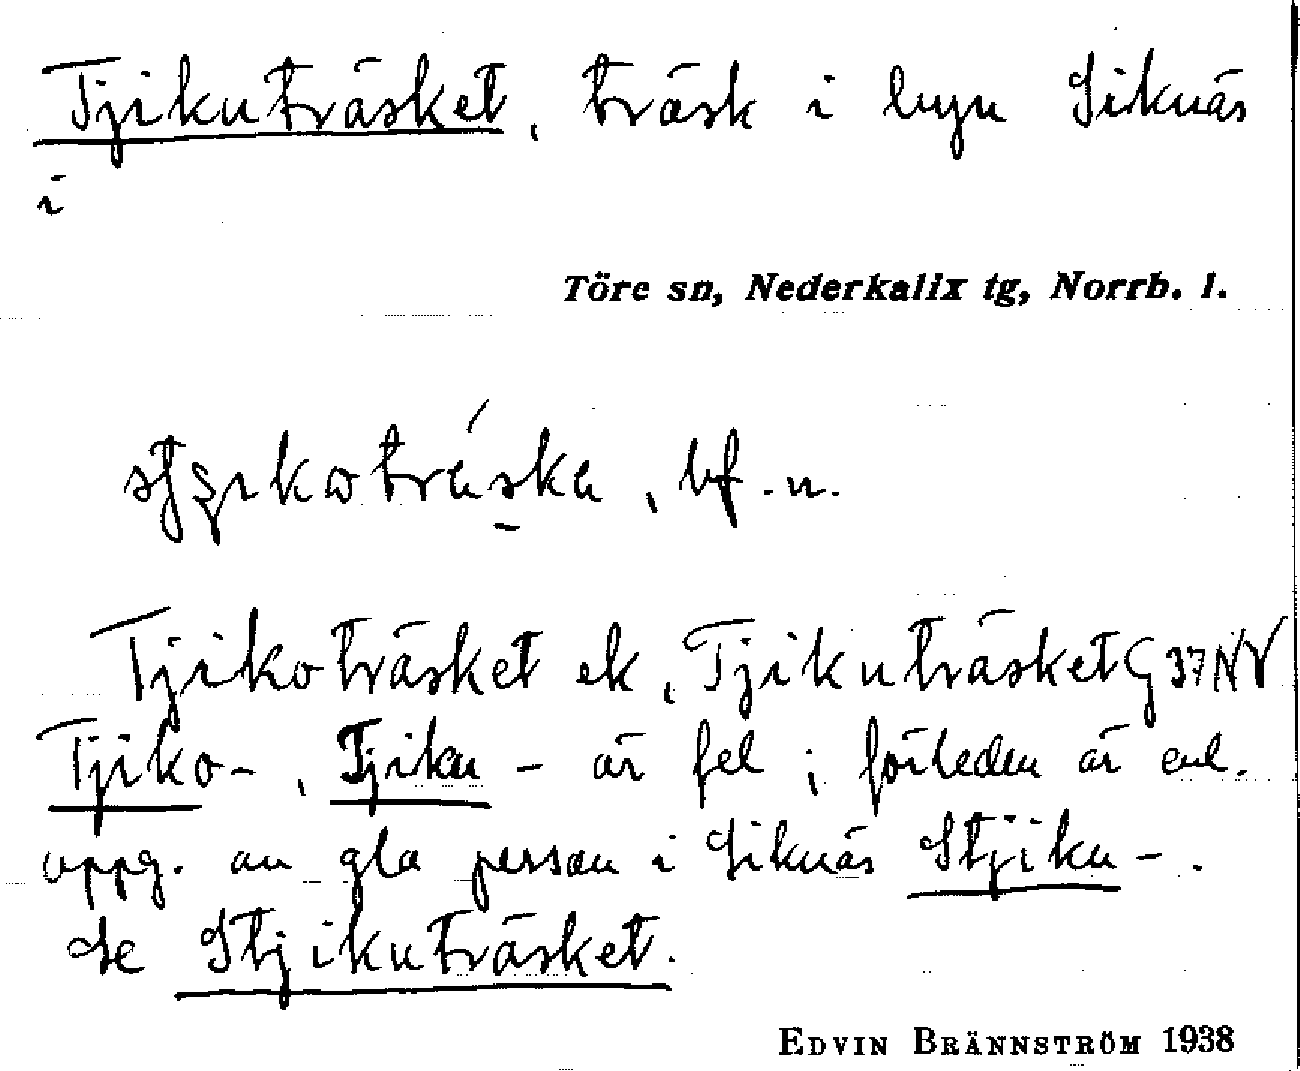 Tjikuträsket, träsk i byn Siknäs
i
Töre sn, Nederkalix tg, Norrb. l.
bf. n.
Tjikoträsket ek, Tjikuträsket G 37 NV
Tjiko-, Tjiku- är fel; förleden är enl.
uppg. av gla person i Siknäs Stjiku-.
Se Stjikuträsket.
EDVIN BRÄNNSTRÖM 1938